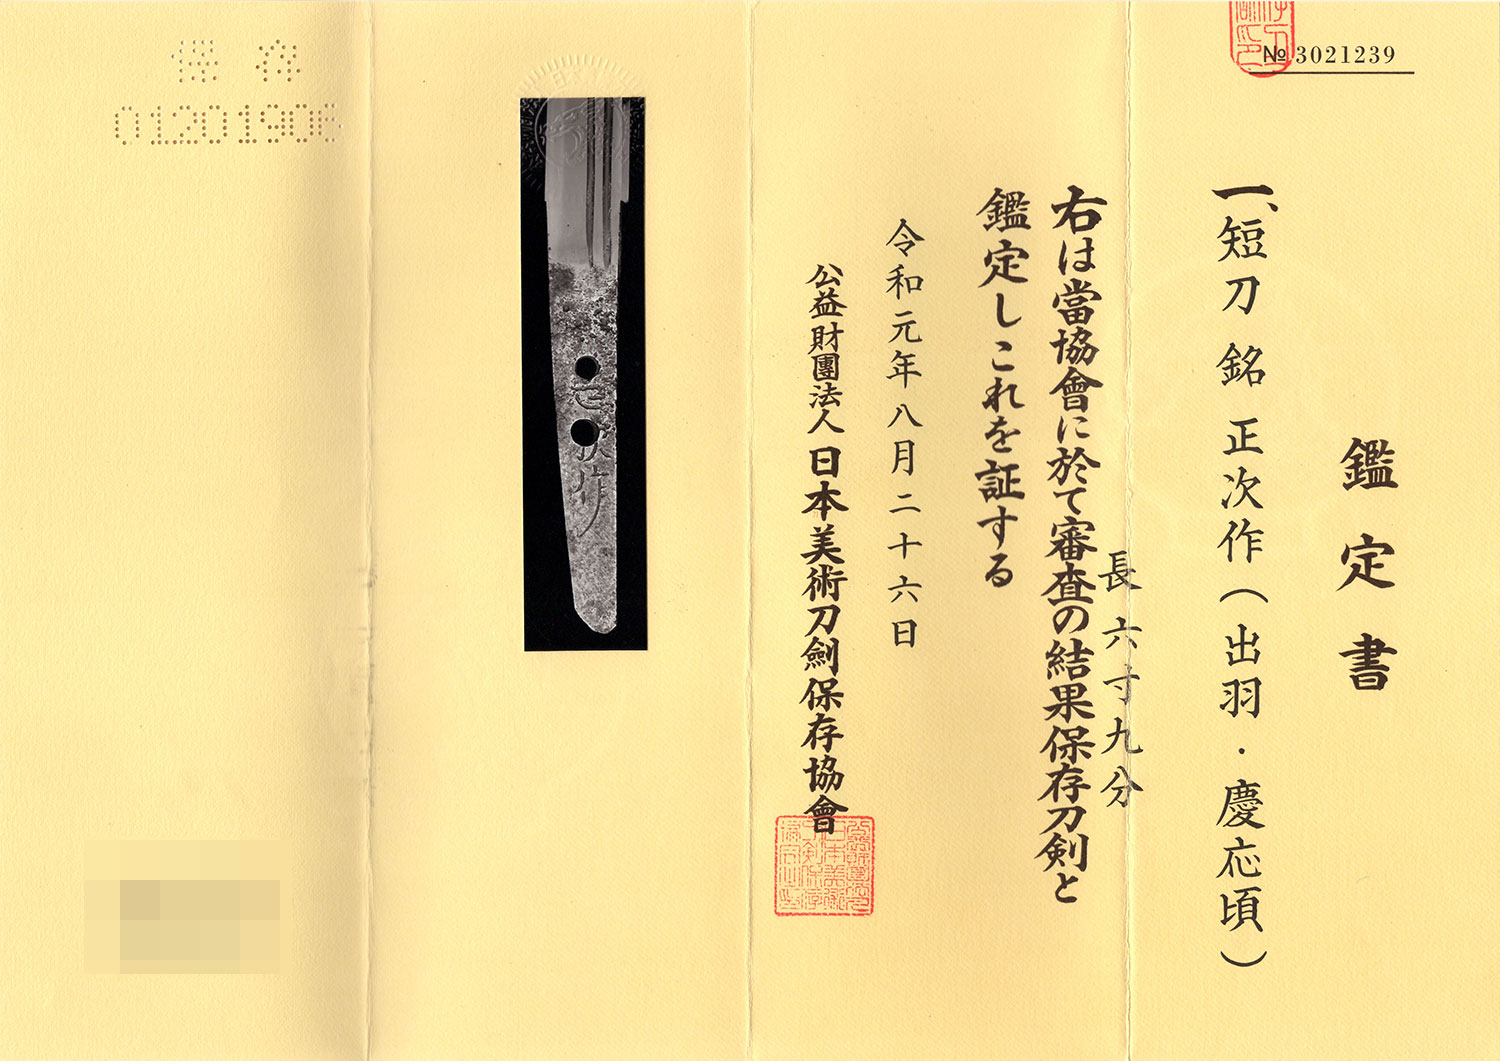 № 3021239
鑑定書
一、短刀 銘 正次作（出羽・慶応頃）
長 六寸九分
右は當協會に於て審査の結果保存刀剣と
鑑定しこれを証する
令和元年八月二十六日
公益財團法人 日本美術刀劍保存協會
次作
保存
01201906